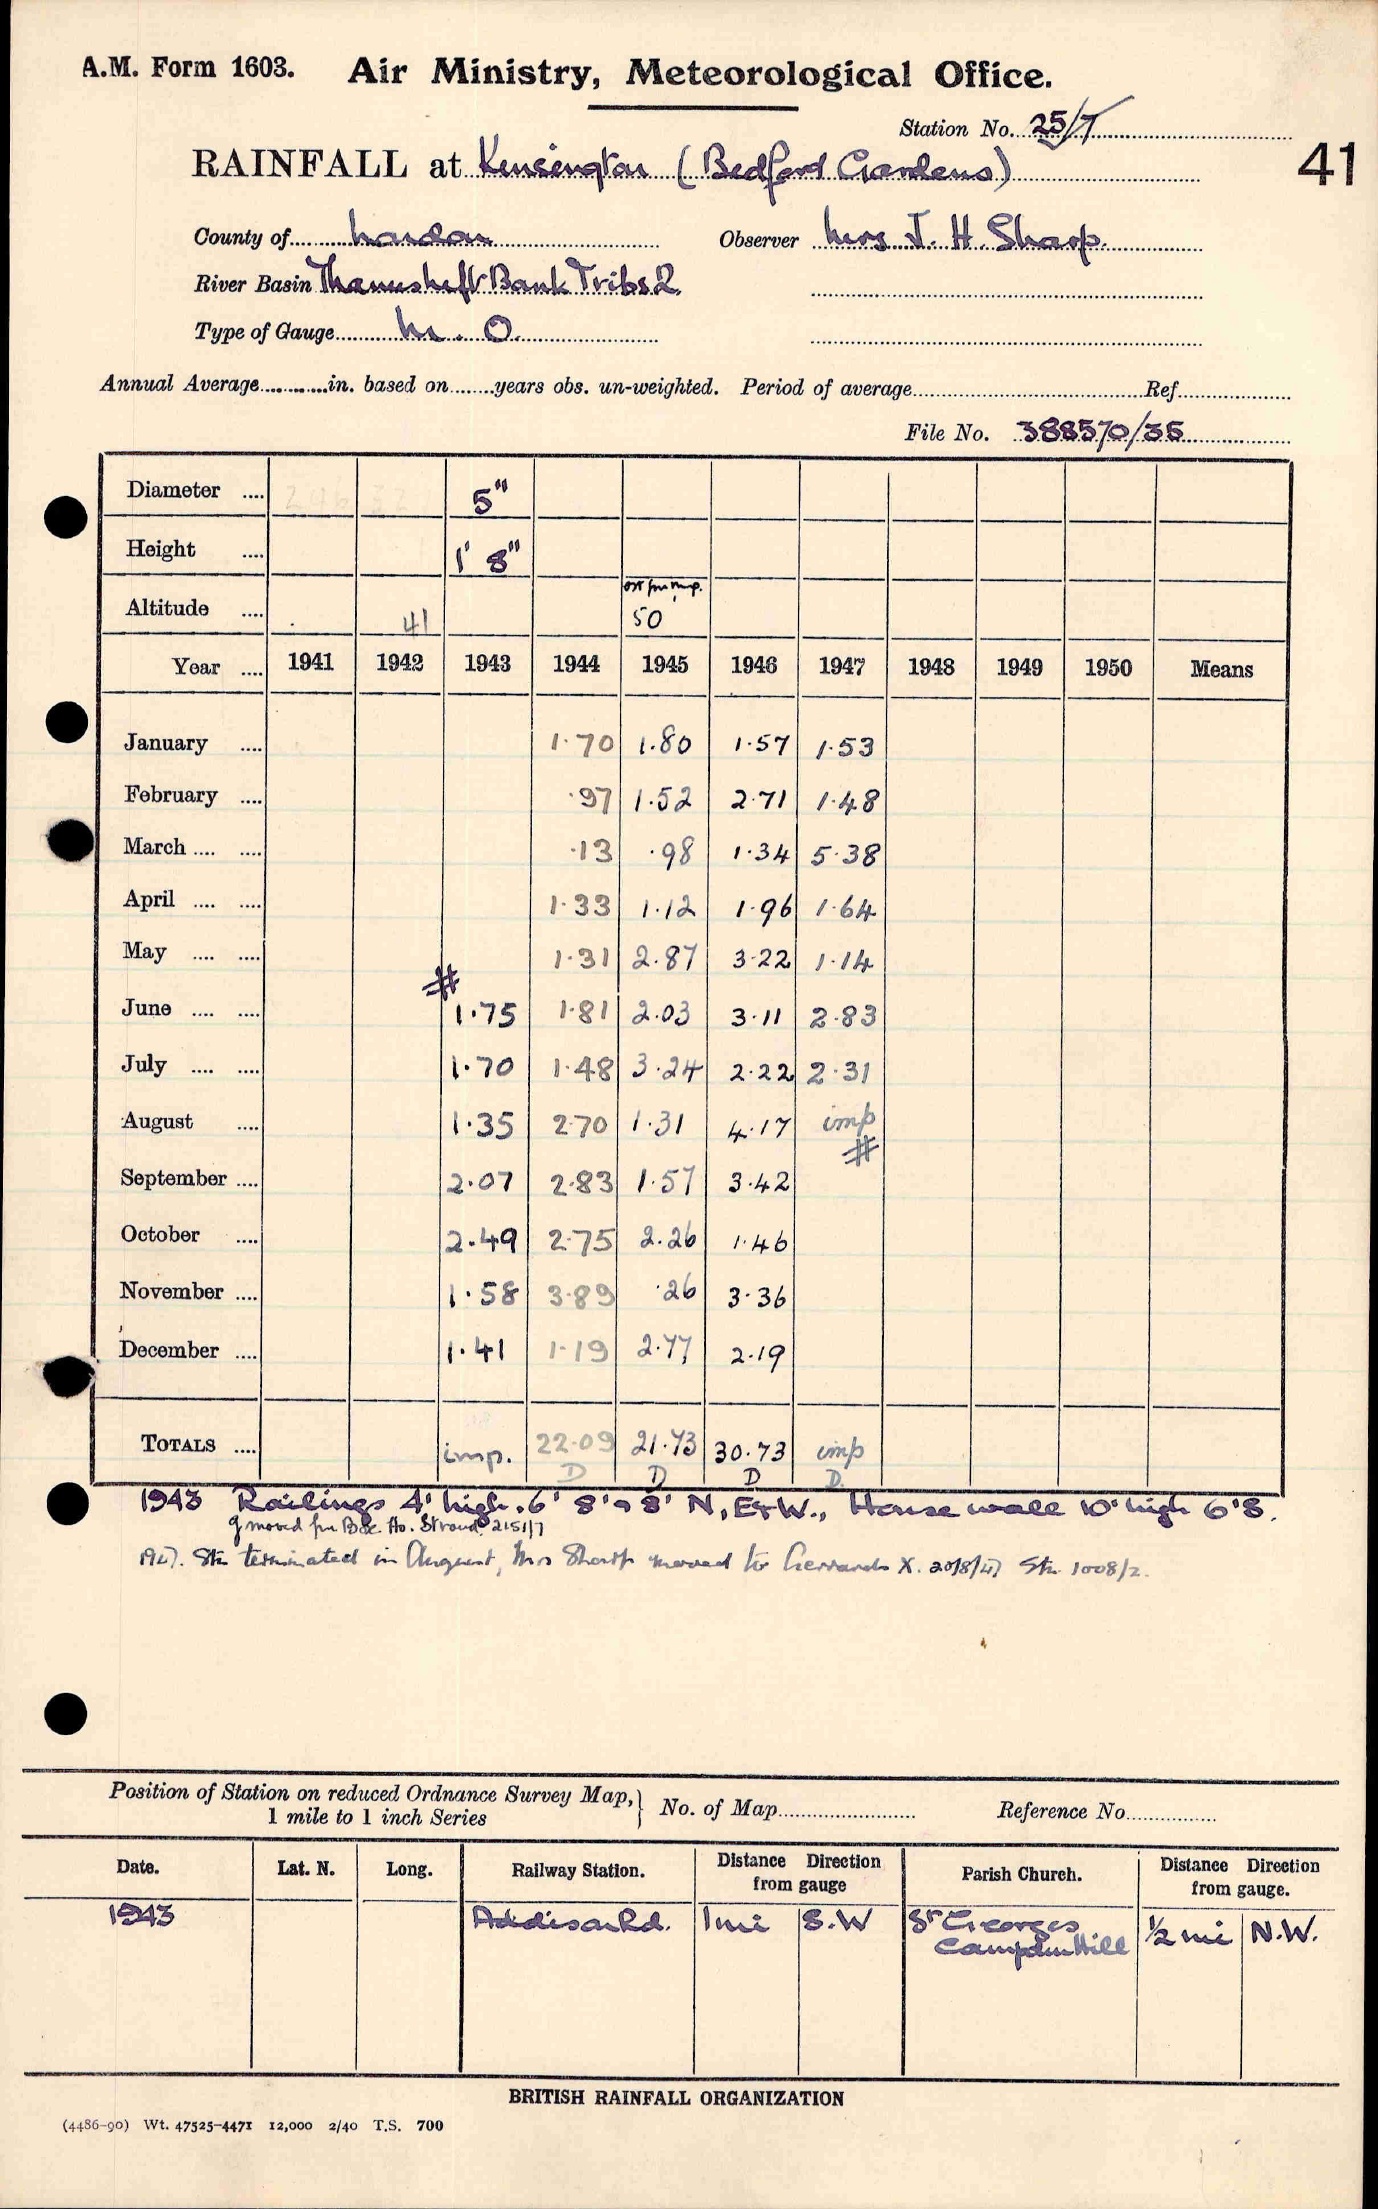 A.M. Form 1603. Air Ministry, Meteorological Office.
Station No. 25/7
41
RAINFALL at Kensington (Bedford Gardens)
County of London Observer Mrs J. H. Sharp.
River Basin Thames Left Bank Tribs 2
Type of Gauge M. O.
Annual Average in. based on years obs. un-weighted. Period of average Ref
File No. 388570/35
Diameter .... 5"
Height .... 1' 8"
Altitude .... 41 50
Year .... 1941 1942 1943 1944 1945 1946 1947 1948 1949 1950 Means
January .... 1.70 1.80 1.57 1.53
February .... .97 1.52 2.71 1.48
March .... .... .13 .98 1.34 5.38
April .... .... 1.33 1.12 1.96 1.64
May .... .... 1.31 2.87 3.22 1.14
June .... .... # 1.75 1.81 2.03 3.11 2.83
July .... .... 1.70 1.48 3.24 2.22 2.31
August .... 1.35 2.70 1.31 4.17 imp #
September .... 2.07 2.83 1.57 3.42
October .... 2.49 2.75 2.26 1.46
November .... 1.58 3.89 .26 3.36
December .... 1.41 1.19 2.77 2.19
TOTALS .... imp. 22.09 21.73 30.73 imp
D D D D
1943 Railings 4' high. 6' 8' & 8' N, E & W., House wall 10' high 6' S.
g moved fm Ho. Stroud 2151/7
1947. Stn terminated in August, Mrs Sharp moved to Gerrards X. 20/8/47 Stn. 1008/2.
Position of Station on reduced Ordnance Survey Map,
1 mile to 1 inch Series
No. of Map Reference No.
Date. Lat. N. Long. Railway Station. Distance Direction from gauge Parish Church. Distance Direction from gauge.
1943 Addison Rd. 1 mi S.W St Georges Campden Hill 1/2 mi N.W.
BRITISH RAINFALL ORGANIZATION
(4486-90) Wt. 47525-4471 12,000 2/40 T.S. 700